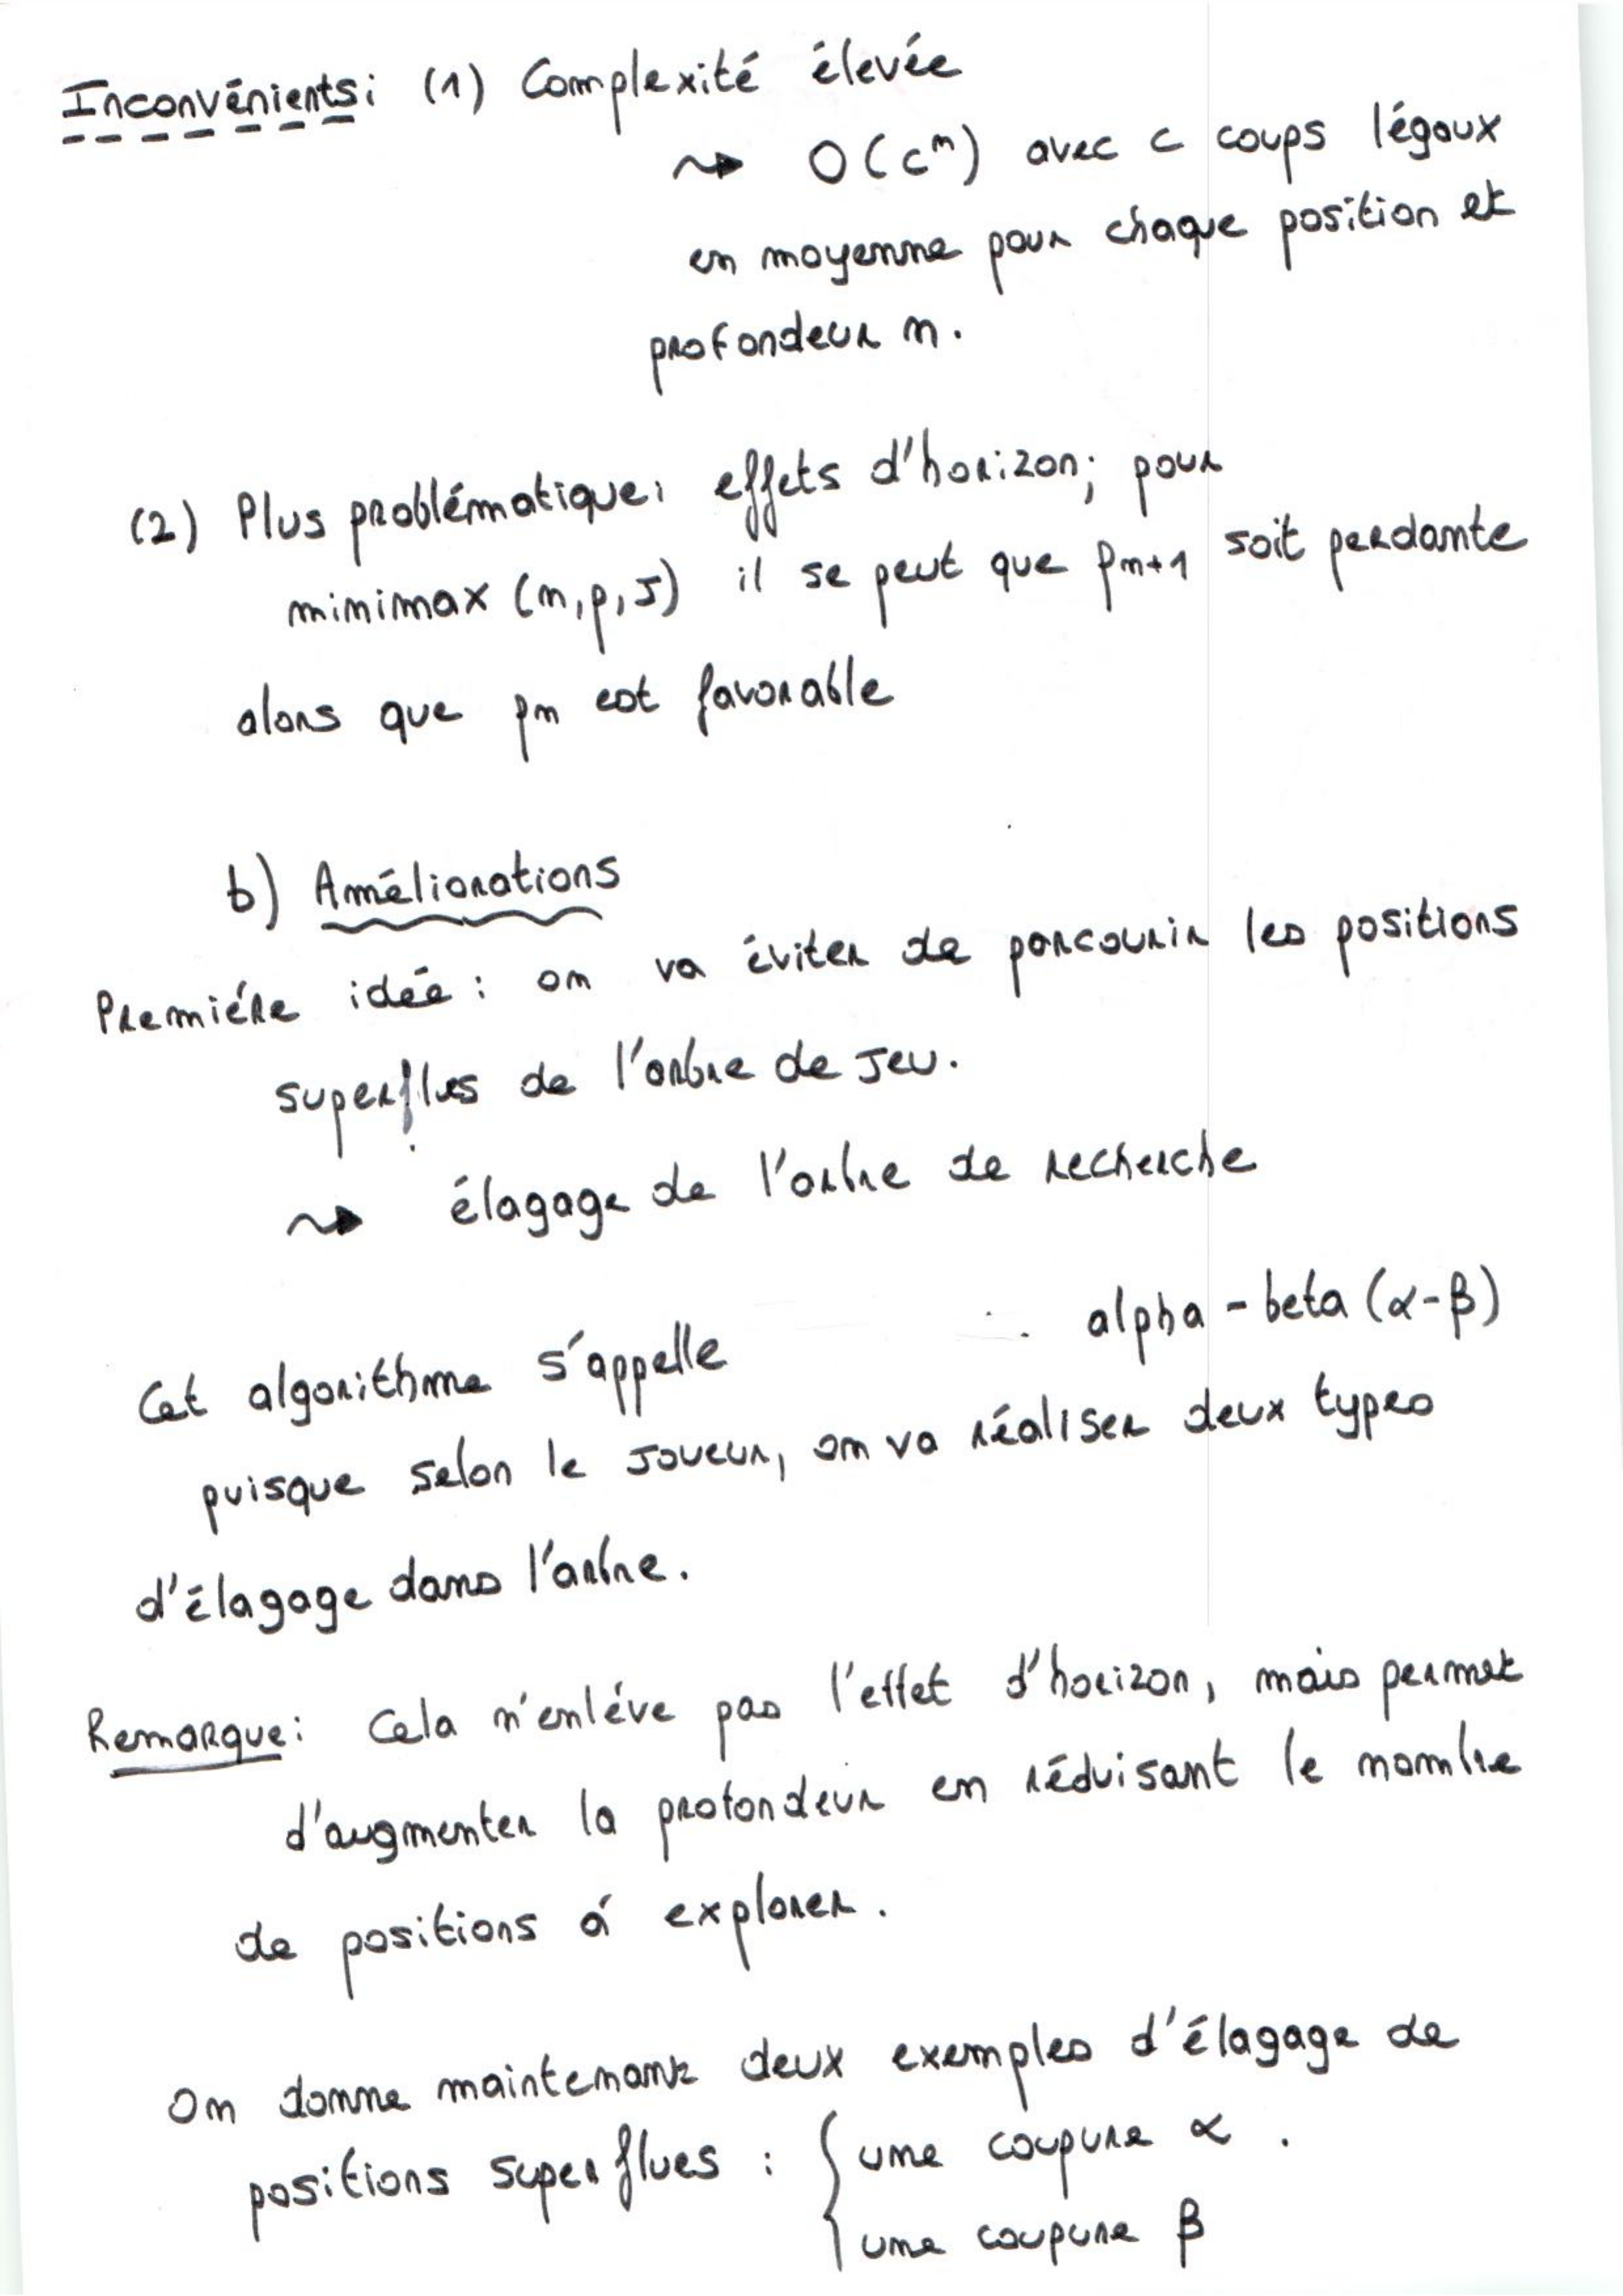 Inconvénients: (1) Complexité élevée
⇝ O(cⁿ) avec c coups légaux
en moyenne pour chaque position et
profondeur n.
(2) Plus problématique: effets d'horizon; pour
minimax (n,p,J) il se peut que pn+1 soit perdante
alors que pn est favorable
b) Améliorations
Premiére idée : on va éviter de parcourir les positions
superflus de l'arbre de jeu.
⇝ élagage de l'arbre de recherche
Cet algorithme s'appelle alpha-beta (α-β)
puisque selon le joueur, on va réaliser deux types
d'élagage dans l'arbre.
Remarque: Cela n'enléve pas l'effet d'horizon, mais permet
d'augmenter la profondeur en réduisant le nombre
de positions á explorer.
On donne maintenant deux exemples d'élagage de
positions superflues : { une coupure α .
une coupure β